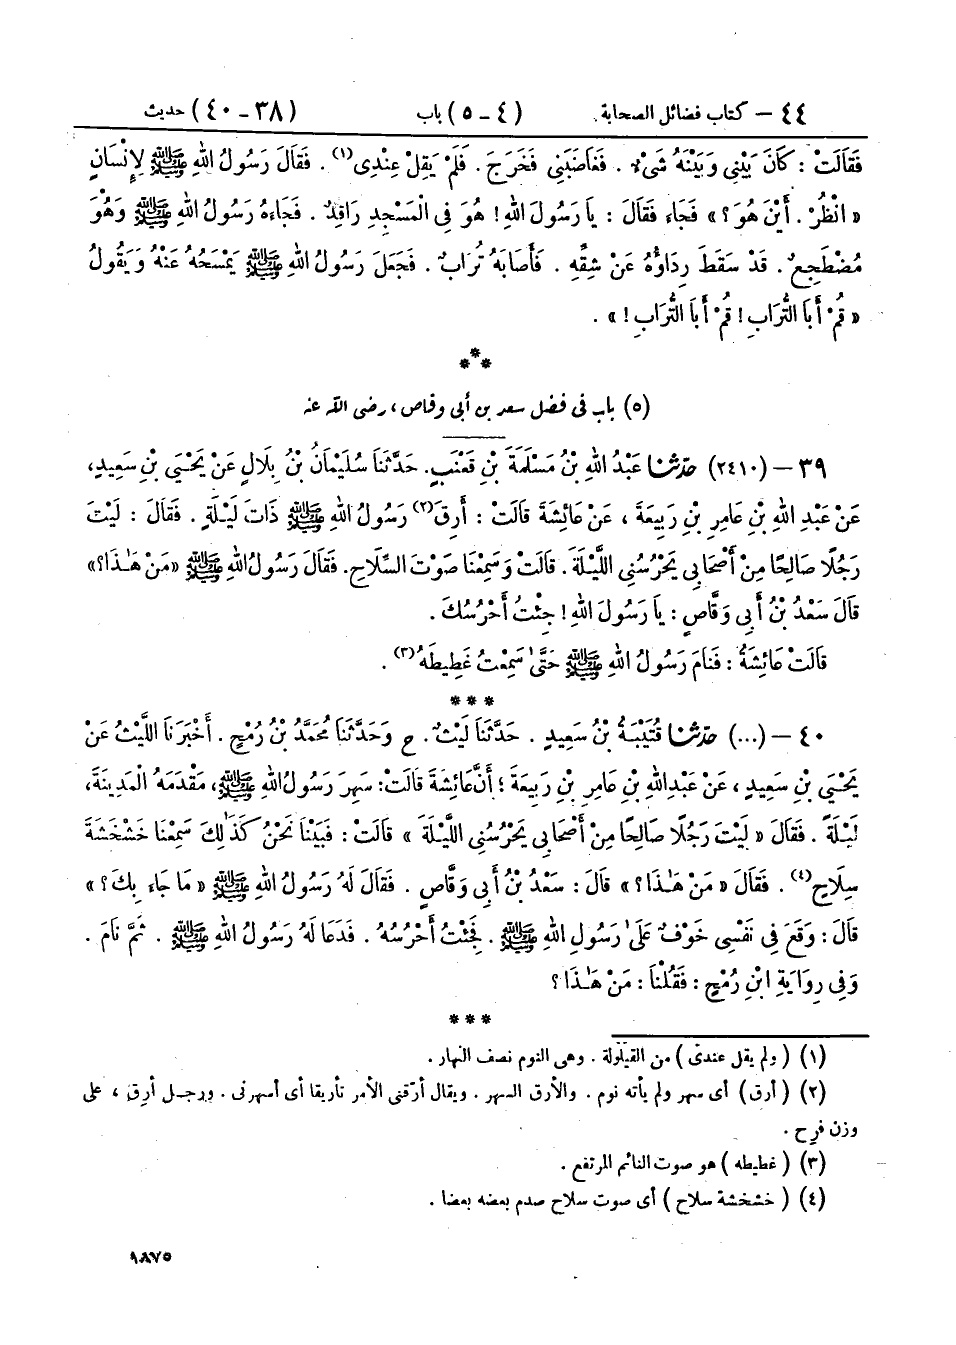 ٤٤ – كتاب فضائل الصحابة (٤ – ٥) باب (٣٨ – ٤٠) حديث
فَقَالَتْ : كَانَ بَيْنِي وَبَيْنَهُ شَيْءٌ . فَغَاضَبَنِي فَخَرَجَ . فَلَمْ يَقِلْ عِنْدِي(١) . فَقَالَ رَسُولُ اللهِ ﷺ لِإِنْسَانٍ
« انْظُرْ . أَيْنَ هُوَ ؟ » فَجَاءَ فَقَالَ : يَا رَسُولَ اللهِ ! هُوَ فِي الْمَسْجِدِ رَاقِدٌ . فَجَاءَهُ رَسُولُ اللهِ ﷺ وَهُوَ
مُضْطَجِعٌ . قَدْ سَقَطَ رِدَاؤُهُ عَنْ شِقِّهِ . فَأَصَابَهُ تُرَابٌ . فَجَعَلَ رَسُولُ اللهِ ﷺ يَمْسَحُهُ عَنْهُ وَيَقُولُ
« قُمْ أَبَا التُّرَابِ ! قُمْ أَبَا التُّرَابِ ! » .
* * *
(٥) باب في فضل سعد بن أبي وقاص ، رضى الله عنه
٣٩ – (٢٤١٠) حدّثنا عَبْدُ اللهِ بْنُ مَسْلَمَةَ بْنِ قَعْنَبٍ . حَدَّثَنَا سُلَيْمَانُ بْنُ بِلَالٍ عَنْ يَحْيَى بْنِ سَعِيدٍ ،
عَنْ عَبْدِ اللهِ بْنِ عَامِرِ بْنِ رَبِيعَةَ ، عَنْ عَائِشَةَ قَالَتْ : أَرِقَ(٢) رَسُولُ اللهِ ﷺ ذَاتَ لَيْلَةٍ . فَقَالَ : لَيْتَ
رَجُلًا صَالِحًا مِنْ أَصْحَابِي يَحْرُسُنِي اللَّيْلَةَ . قَالَتْ وَسَمِعْنَا صَوْتَ السِّلَاحِ . فَقَالَ رَسُولُ اللهِ ﷺ « مَنْ هَٰذَا ؟ »
قَالَ سَعْدُ بْنُ أَبِي وَقَّاصٍ : يَا رَسُولَ اللهِ ! جِئْتُ أَحْرُسُكَ .
قَالَتْ عَائِشَةُ : فَنَامَ رَسُولُ اللهِ ﷺ حَتَّىٰ سَمِعْتُ غَطِيطَهُ(٣) .
* * *
٤٠ – (...) حدّثنا قُتَيْبَةُ بْنُ سَعِيدٍ . حَدَّثَنَا لَيْثٌ . ح وَحَدَّثَنَا مُحَمَّدُ بْنُ رُمْحٍ . أَخْبَرَنَا اللَّيْثُ عَنْ
يَحْيَى بْنِ سَعِيدٍ ، عَنْ عَبْدِ اللهِ بْنِ عَامِرِ بْنِ رَبِيعَةَ ؛ أَنَّ عَائِشَةَ قَالَتْ : سَهِرَ رَسُولُ اللهِ ﷺ ، مَقْدَمَهُ الْمَدِينَةَ ،
لَيْلَةً . فَقَالَ « لَيْتَ رَجُلًا صَالِحًا مِنْ أَصْحَابِي يَحْرُسُنِي اللَّيْلَةَ » قَالَتْ : فَبَيْنَا نَحْنُ كَذَٰلِكَ سَمِعْنَا خَشْخَشَةَ
سِلَاحٍ(٤) . فَقَالَ « مَنْ هَٰذَا ؟ » قَالَ : سَعْدُ بْنُ أَبِي وَقَّاصٍ . فَقَالَ لَهُ رَسُولُ اللهِ ﷺ « مَا جَاءَ بِكَ ؟ »
قَالَ : وَقَعَ فِي نَفْسِي خَوْفٌ عَلَىٰ رَسُولِ اللهِ ﷺ . فَجِئْتُ أَحْرُسُهُ . فَدَعَا لَهُ رَسُولُ اللهِ ﷺ . ثُمَّ نَامَ .
وَفِي رِوَايَةِ ابْنِ رُمْحٍ : فَقُلْنَا : مَنْ هَٰذَا ؟
* * *
(١) ( ولم يقل عندى ) من القيلولة . وهى النوم نصف النهار .
(٢) ( أرق ) أى سهر ولم يأته نوم . والأرق السهر . ويقال أرّقنى الأمر تأريقا أى أسهرنى . ورجل أرِق ، على
وزن فرح .
(٣) ( غطيطه ) هو صوت النائم المرتفع .
(٤) ( خشخشة سلاح ) أى صوت سلاح صدم بعضه بعضا .
١٨٧٥